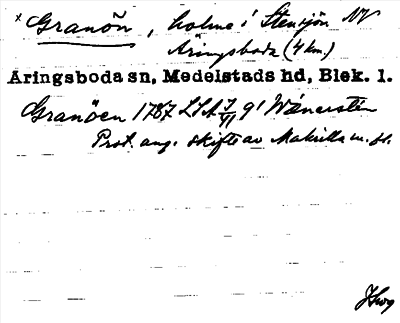 × Granön, holme i Stensjön NV
Åringsboda (4 km)
Åringsboda sn, Medelstads hd, Blek. l.
Granöen 1787 LSA 9
Prot. ang. skifte av Makrilla m. fl.